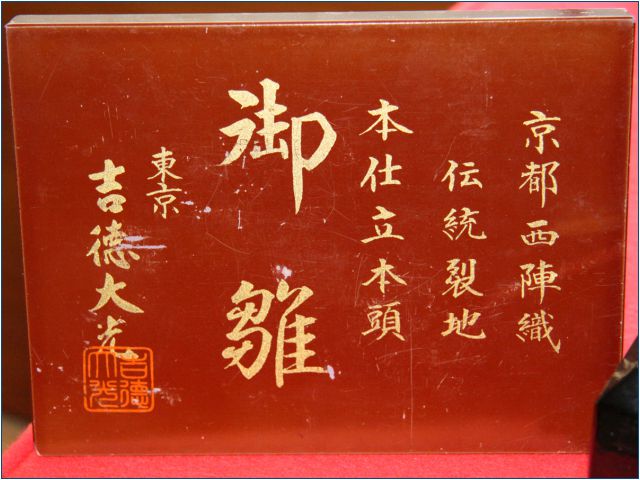 京都西陣織
伝統裂地
本仕立本頭
御雛
東京
吉德大光
吉德大光